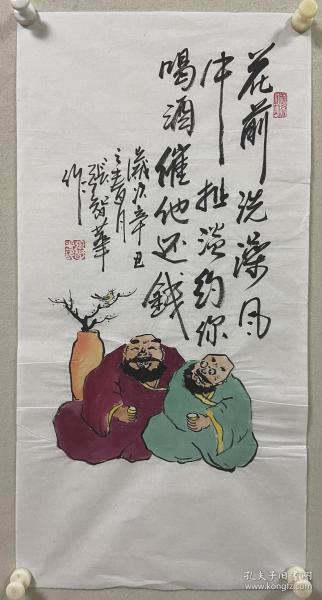 花前洗澡风
中扯淡约你
喝酒催他还钱
岁次辛丑
之春月
张智华
作
孔夫子旧书网
www.kongfz.com